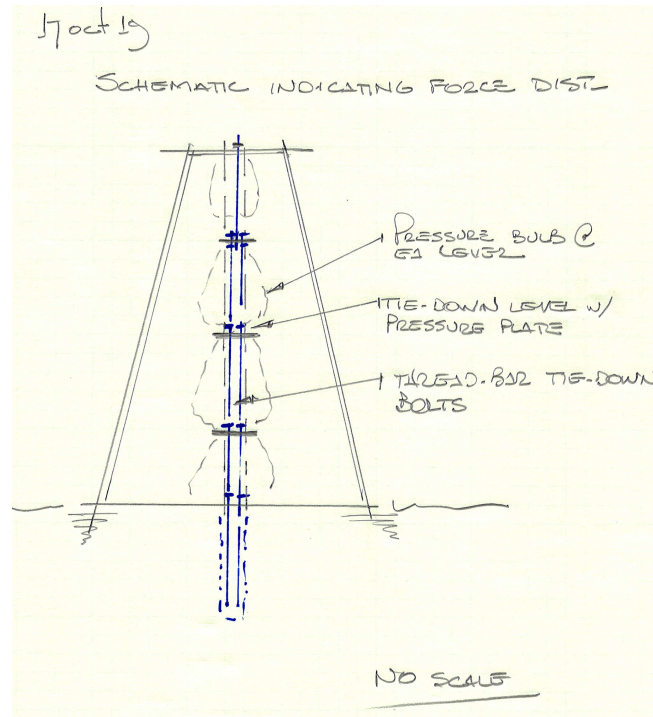 17 oct 19
SCHEMATIC INDICATING FORCE DIST.
PRESSURE BULB @
EA LEVEL
TIE-DOWN LEVEL W/
PRESSURE PLATE
THREAD-BAR TIE-DOWN
BOLTS
NO SCALE